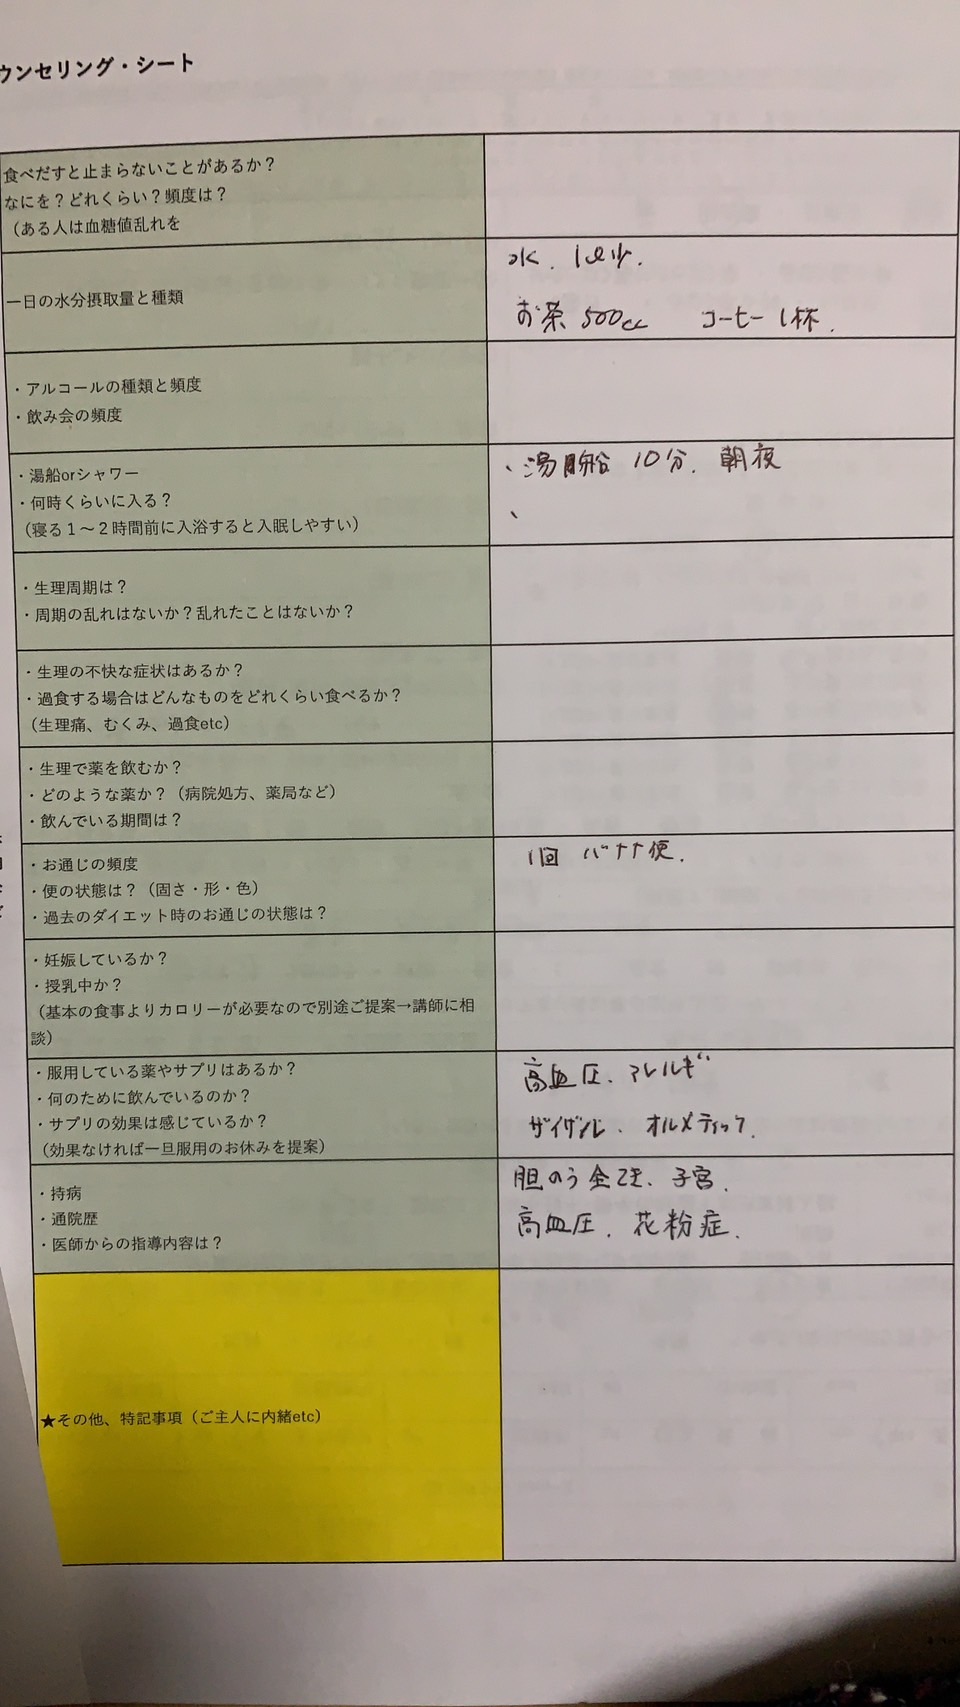 ウンセリング・シート
食べだすと止まらないことがあるか？
なにを？どれくらい？頻度は？
（ある人は血糖値乱れを
一日の水分摂取量と種類
水. 1ℓ少.
お茶 500cc コーヒー 1杯.
・アルコールの種類と頻度
・飲み会の頻度
・湯船orシャワー
・何時くらいに入る？
（寝る１〜２時間前に入浴すると入眠しやすい）
、湯船 10分. 朝夜
、
・生理周期は？
・周期の乱れはないか？乱れたことはないか？
・生理の不快な症状はあるか？
・過食する場合はどんなものをどれくらい食べるか？
（生理痛、むくみ、過食etc）
・生理で薬を飲むか？
・どのような薬か？（病院処方、薬局など）
・飲んでいる期間は？
・お通じの頻度
・便の状態は？（固さ・形・色）
・過去のダイエット時のお通じの状態は？
1回 バナナ便.
・妊娠しているか？
・授乳中か？
（基本の食事よりカロリーが必要なので別途ご提案→講師に相
談）
・服用している薬やサプリはあるか？
・何のために飲んでいるのか？
・サプリの効果は感じているか？
（効果なければ一旦服用のお休みを提案）
高血圧. アレルギ
ザイザル. オルメテック.
・持病
・通院歴
・医師からの指導内容は？
胆のう全てき. 子宮.
高血圧. 花粉症.
★その他、特記事項（ご主人に内緒etc）